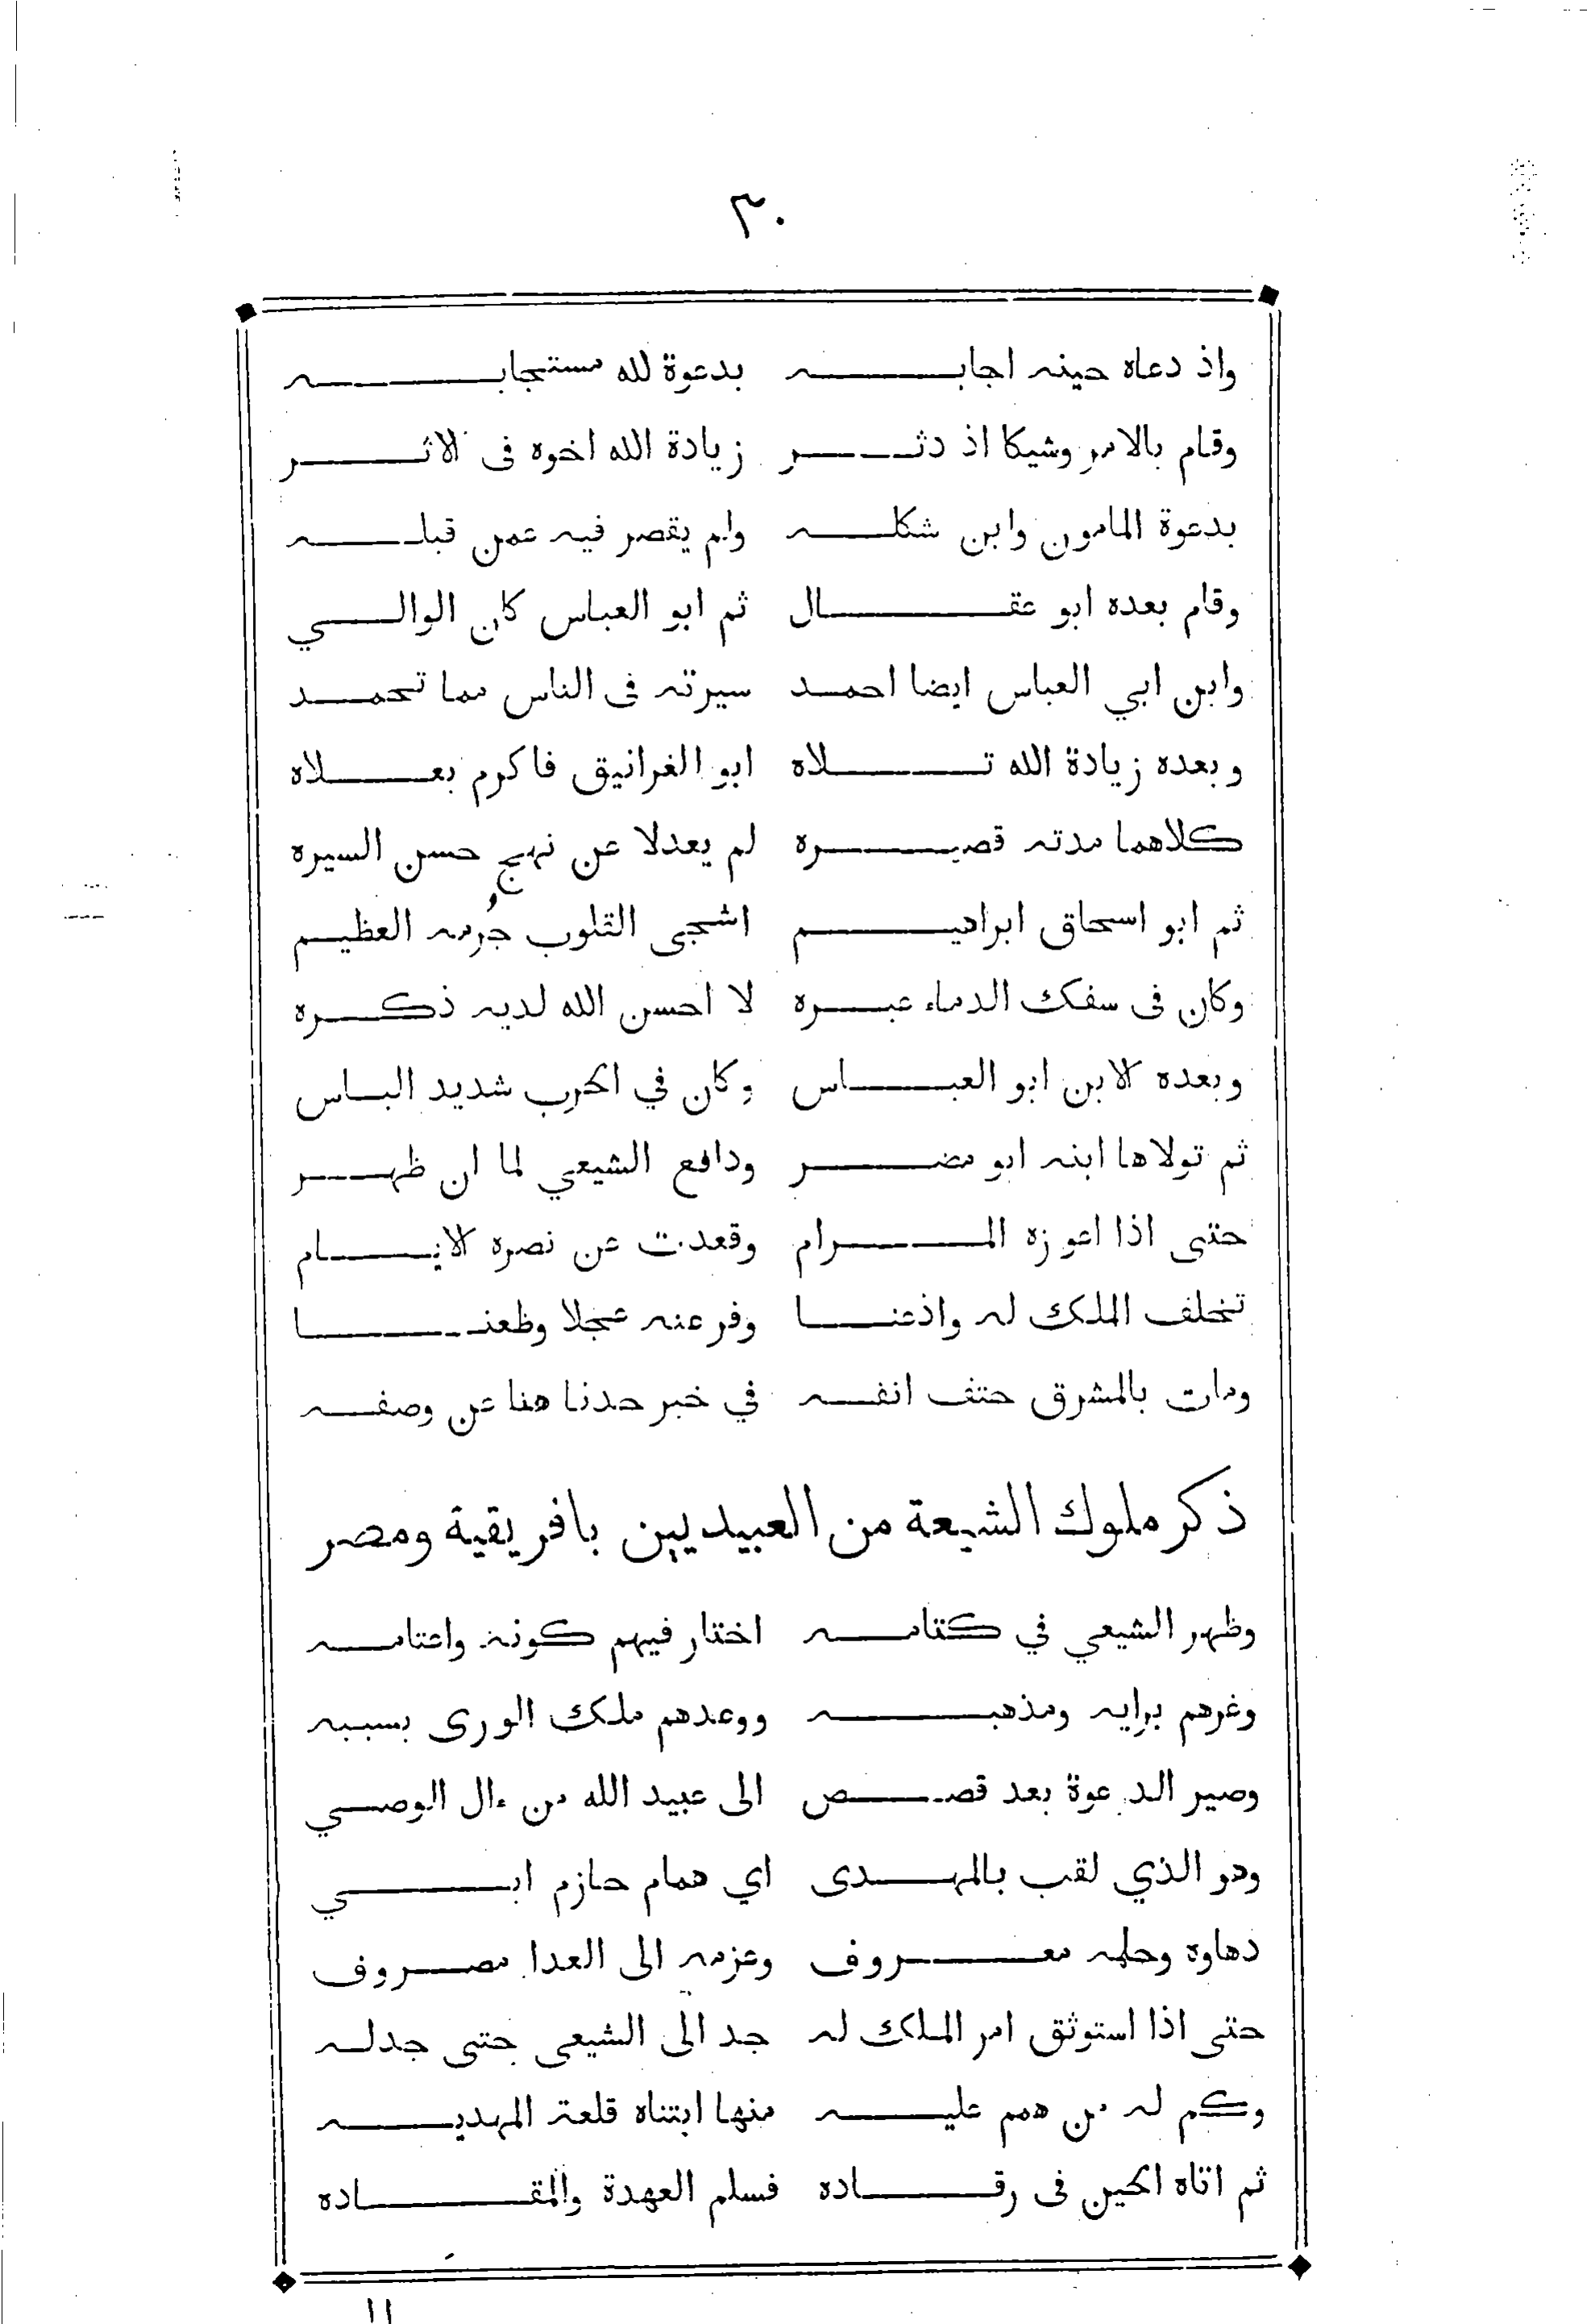 ٣٠
واذ دعاه حينه اجابه بدعوة لله مستجابه
وقام بالامر وشيكا اذ دثر زيادة الله اخوه فى الاثر
بدعوة المامون وابن شكله ولم يقصر فيه عمن قبله
وقام بعده ابو عقال ثم ابو العباس كان الوالي
وابن ابي العباس ايضا احمد سيرته فى الناس مما تحمد
وبعده زيادة الله تلاه ابو الغرانيق فاكرم بعلاه
كلاهما مدته قصيره لم يعدلا عن نهج حسن السيره
ثم ابو اسحاق ابراهيم اشجى القلوب جُرمه العظيم
وكان فى سفك الدماء عبره لا احسن الله لديه ذكره
وبعده الابن ابو العباس وكان في الحرب شديد الباس
ثم تولاها ابنه ابو مضر ودافع الشيعي لما ان ظهر
حتى اذا اعوزه المرام وقعدت عن نصره الايام
تخلف الملك له واذعنا وفر عنه عجلا وظعنا
ومات بالمشرق حتف انفه في خبر حدنا هنا عن وصفه
ذكر ملوك الشيعة من العبيديين بافريقية ومصر
وظهر الشيعي في كتامه اختار فيهم كونه واعتامه
وغرهم برايه ومذهبه ووعدهم ملك الورى بسببه
وصير الدعوة بعد قصص الى عبيد الله من ءال الوصي
وهو الذي لقب بالمهدى اي همام حازم ابي
دهاوه وحلمه معروف وعزمه الى العدا مصروف
حتى اذا استوثق امر الملك له جد الى الشيعي حتى جدله
وكم له من همم عليه منها ابتناه قلعة المهديه
ثم اتاه الحين فى رقاده فسلم العهدة والمقاده
١١